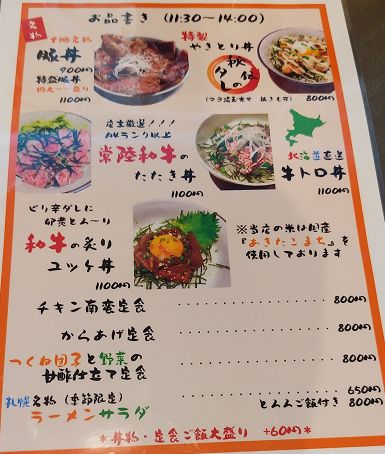 お品書き (11:30～14:00)
名物
十勝名物
豚丼
900円
特盛豚丼
肉大～～盛り
1100円
特製
やきとり丼
秘伝のタレ
800円
店主厳選！！！
A4ランク以上
常陸和牛の
たたき丼
1100円
北海道直送
牛トロ丼
1100円
ピリ辛ダレに
卵黄とろ～り
和牛の炙り
ユッケ丼
1100円
※当店の米は国産
『あきたこまち』を
使用しております
チキン南蛮定食 800円
からあげ定食 800円
つくね団子と野菜の
甘酢仕立て定食 800円
札幌名物 (季節限定) 650円
ラーメンサラダ とんんご飯付き 800円
*丼物・定食ご飯大盛り +60円*